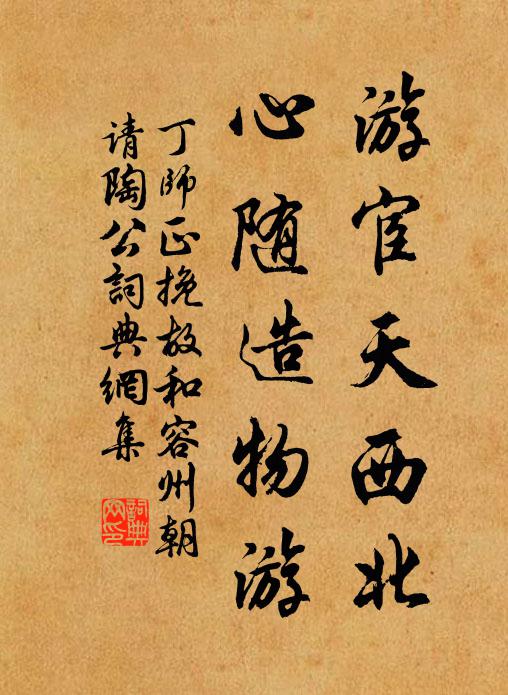 游宦天西北
心随造物游
丁师正挽故和容州朝
请陶公詞典網集
詞典
网印